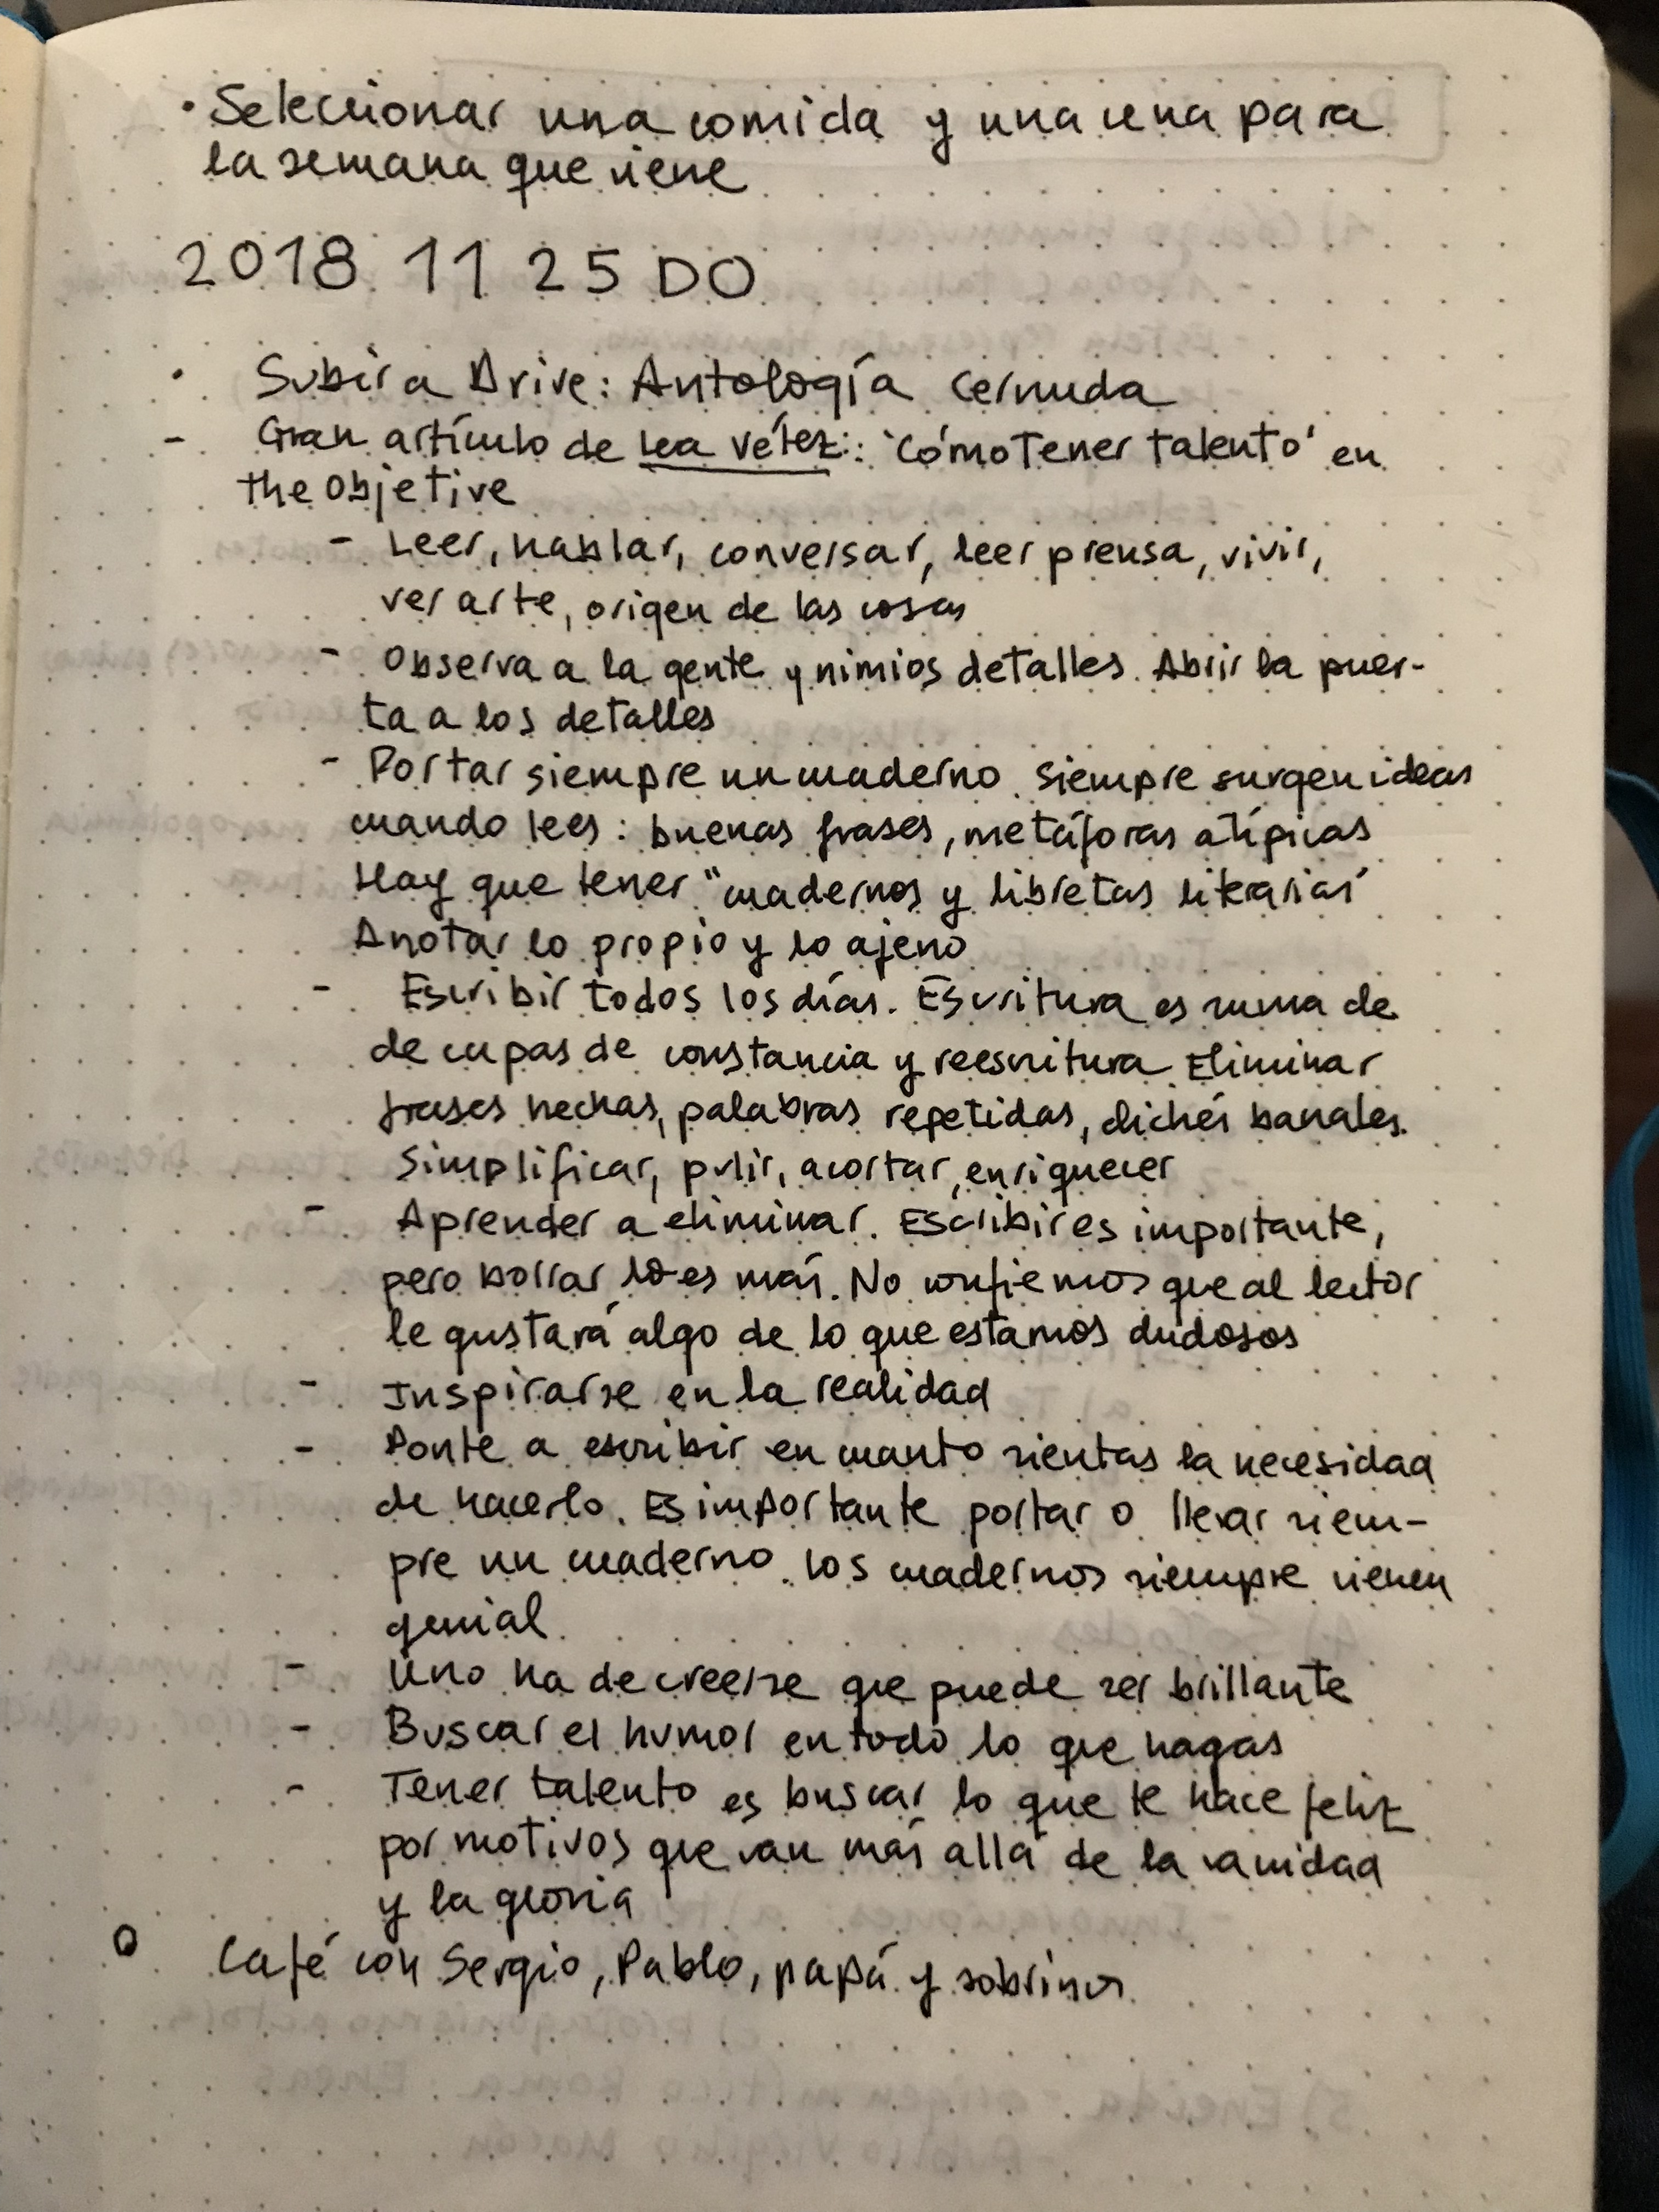 · Seleccionar una comida y una cena para
la semana que viene
2018 11 25 DO
· Subir a Drive: Antología Cernuda
- Gran artículo de Lea Vélez: 'Cómo Tener talento' en
the Objetive
- Leer, hablar, conversar, leer prensa, vivir,
ver arte, origen de las cosas
- Observa a la gente y nimios detalles. Abrir la puer-
ta a los detalles
- Portar siempre un cuaderno. Siempre surgen ideas
cuando lees: buenas frases, metáforas atípicas
Hay que tener "cuadernos y libretas literarias"
Anotar lo propio y lo ajeno
- Escribir todos los días. Escritura es suma de
de capas de constancia y reescritura. Eliminar
frases hechas, palabras repetidas, clichés banales.
Simplificar, pulir, acortar, enriquecer
- Aprender a eliminar. Escribir es importante,
pero borrar lo es más. No confiemos que al lector
le gustará algo de lo que estamos dudosos
- Inspirarse en la realidad
- Ponte a escribir en cuanto sientas la necesidad
de hacerlo. Es importante portar o llevar siem-
pre un cuaderno. Los cuadernos siempre vienen
genial.
- Uno ha de creerse que puede ser brillante
- Buscar el humor en todo lo que hagas
- Tener talento es buscar lo que te hace feliz
por motivos que van más allá de la vanidad
y la gloria
o Café con Sergio, Pablo, papá y sobrinos.